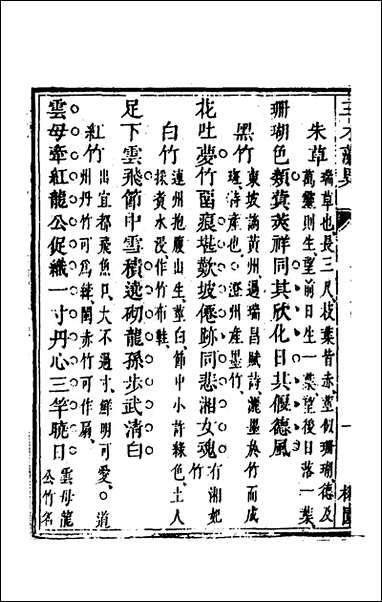 朱草 瑞草也長三尺枝葉皆赤莖似珊瑚德及
萬靈則生望前日生一葉望後日落一葉
珊瑚色類蓂莢祥同其欣化日共偃德風
黑竹 東坡謫黄州過瑞昌賦詩灑墨於竹而成
斑詩産也○澄州産墨竹
花吐夢竹留痕堪歎坡僊跡同悲湘女魂 有湘妃
竹
白竹 連州抱腹山生莖白節中小許綠色土人
採黄水浸作竹布鞋
足下雲飛節中雪積遶砌龍孫步武清白
紅竹 出宜都飛魚口大不過寸鮮明可愛○道
州丹竹可為練閩赤竹可作扇
雲母牽紅龍公促織一寸丹心三竿曉日 雲母龍
公竹名